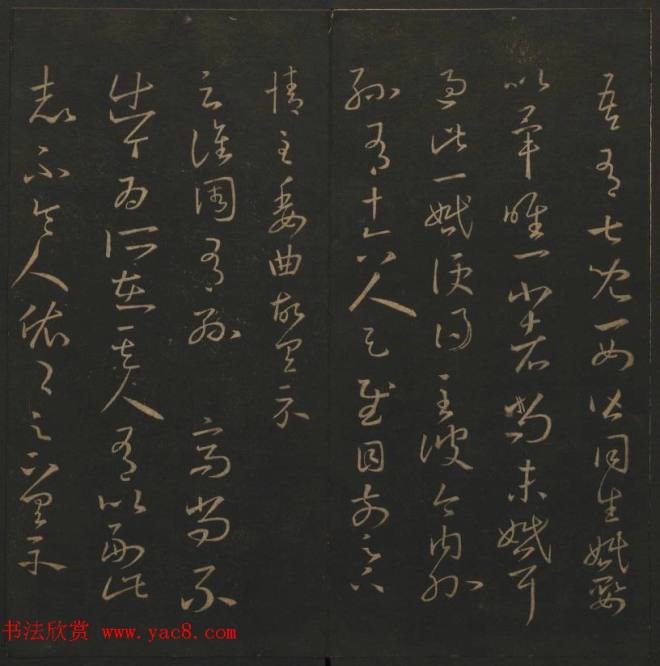 吾有七兒一女皆同生婚娶
以畢唯一小者尚未婚耳
過此一婚便得至彼今內外
孫有十六人足慰目前足下
情至委曲故具示
云譙周有孫 高尚不
出今為所在其人有以副此
志不令人依依足下具示
书法欣赏 www.yac8.com